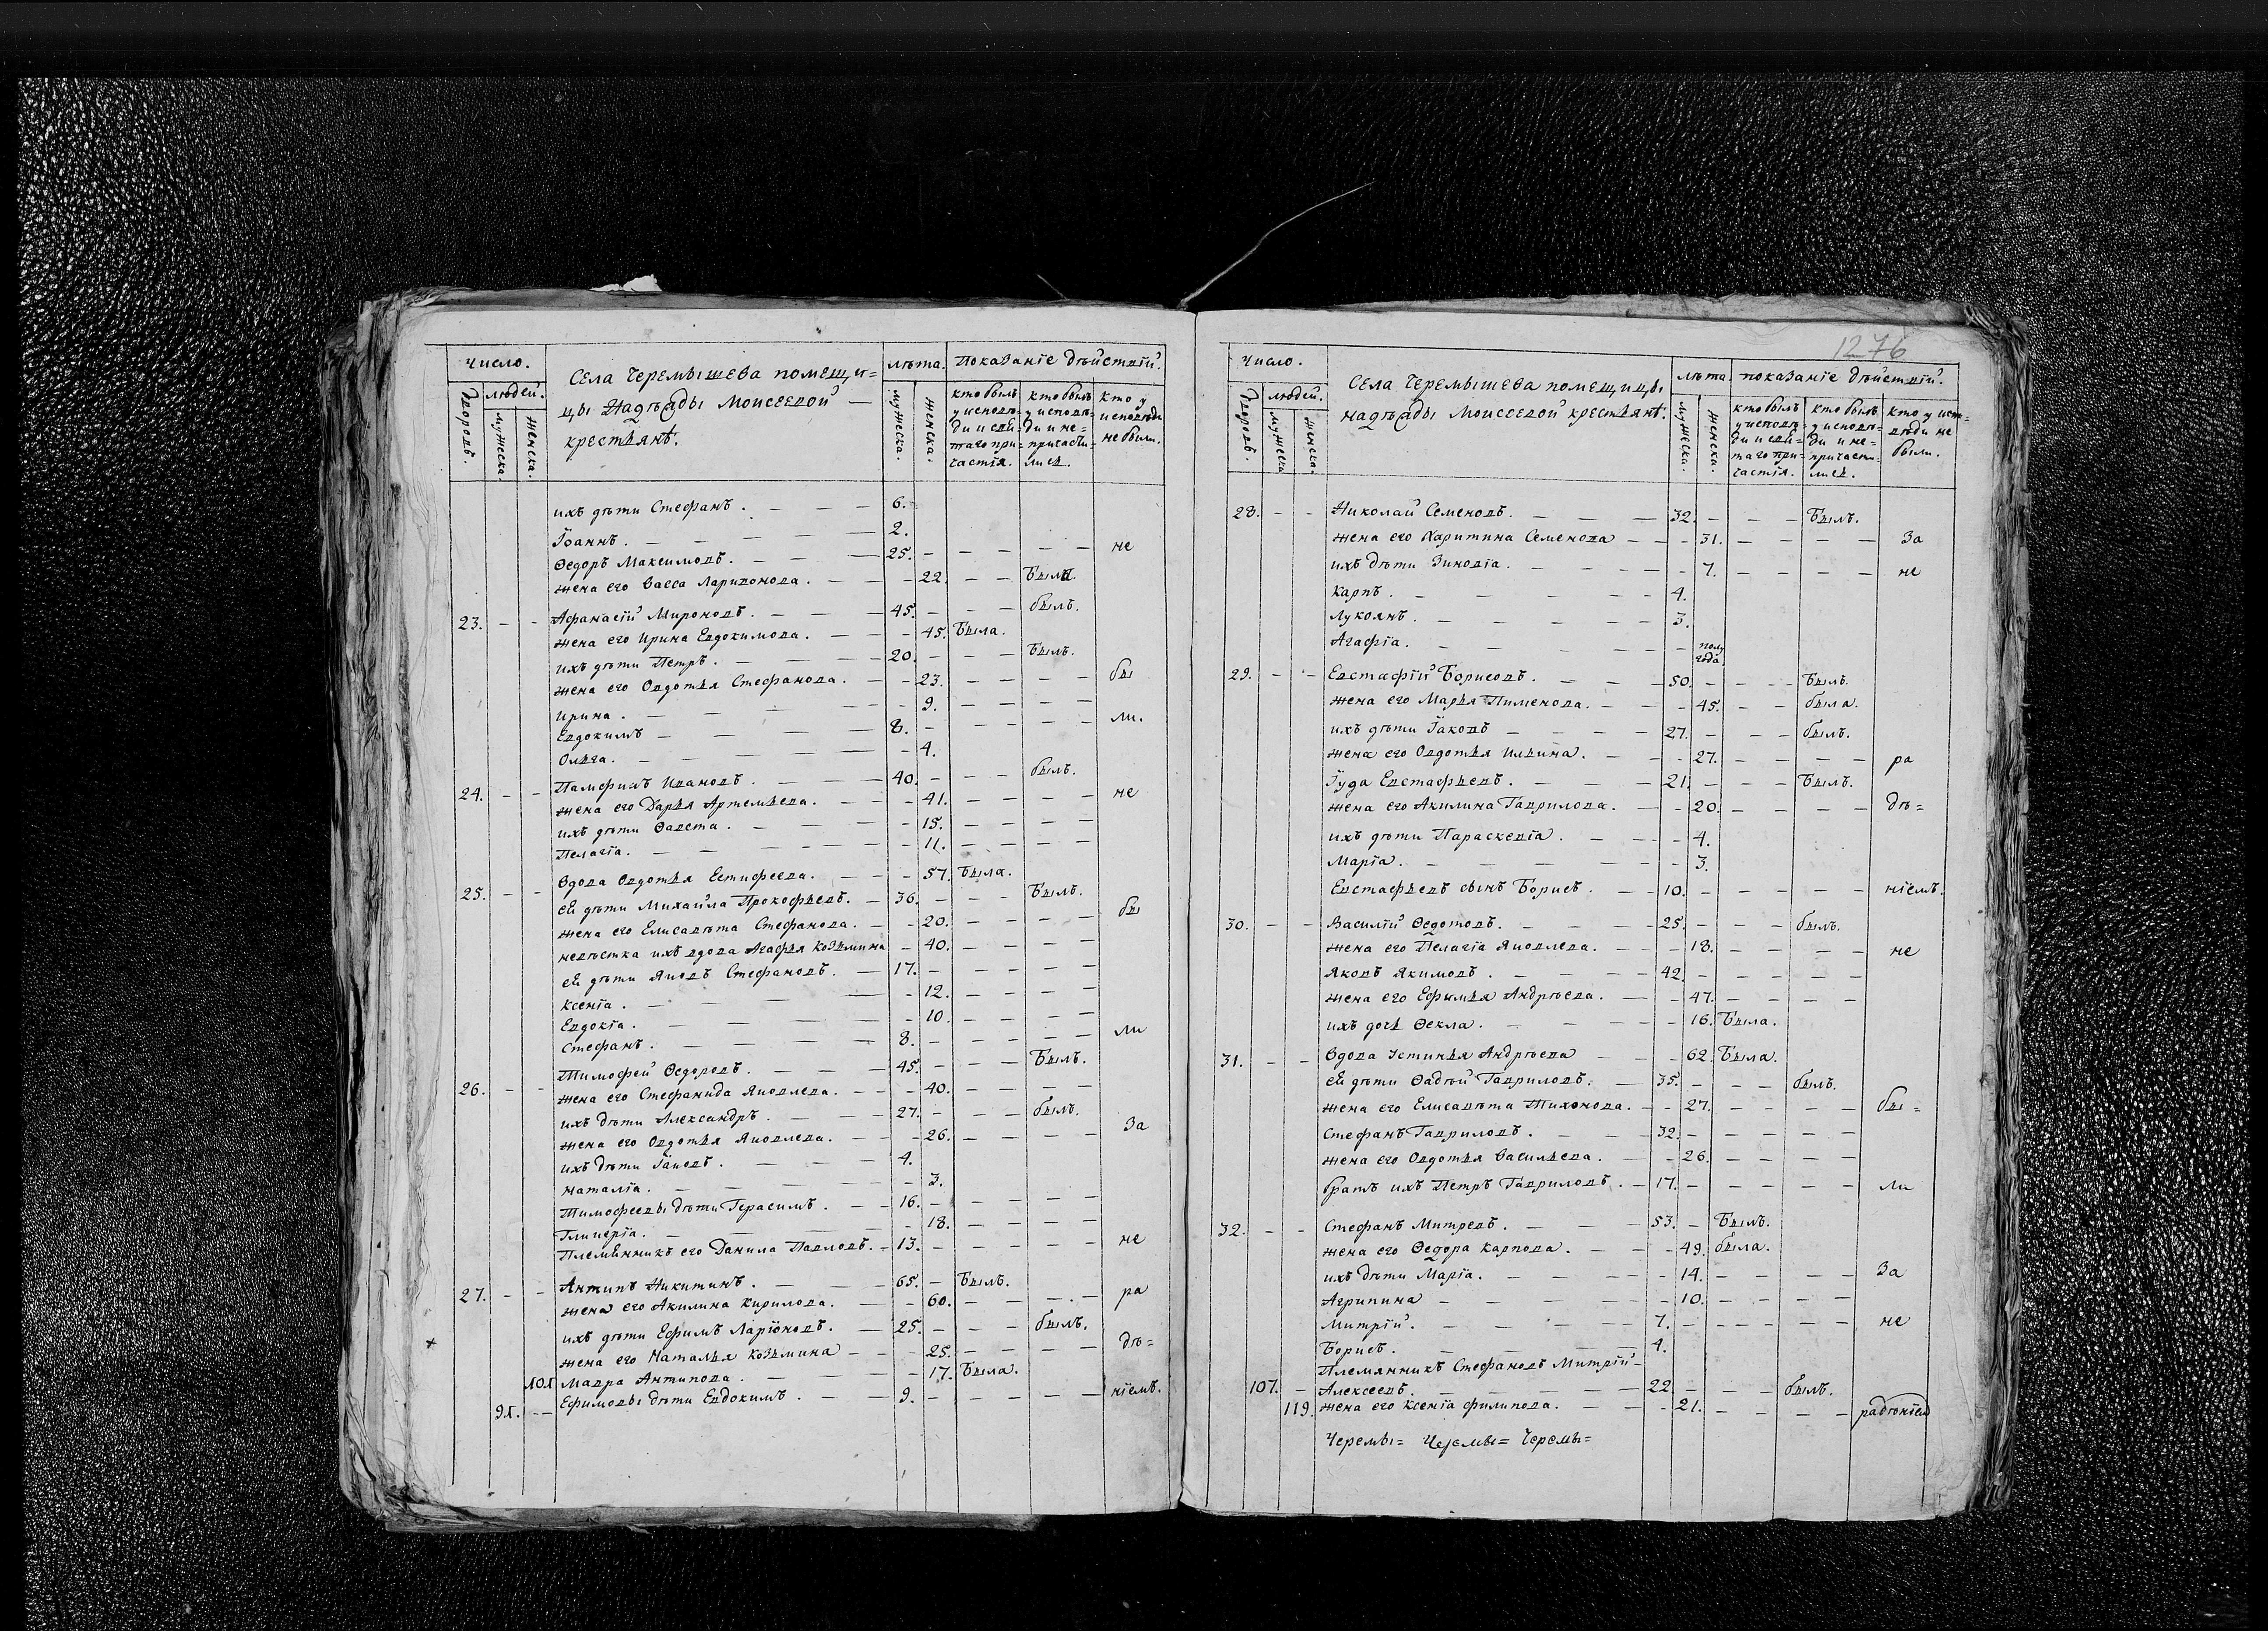 число.
Села Черемышева помещи=
лѣта.
показаніе дѣйствій.
людей.
цы Надѣжды Моисеевой —
крестьянѣ.
дворовъ.
мужеска.
женска.
мужеска.
женска.
кто былъ у исповѣ= ди и свя= таго при= частія.
кто былъ у исповѣ= ди и не= причасти= лисѣ.
кто у исповѣди не были.
ихъ дѣти Стефанъ. — — — 6.
Іоаннъ. — — — — 2.
Ѳедоръ Максимовъ. — — — 25. — — — — — не
жена его Васса Ларивонова. — — — 22. — — была.
23. — — Афанасій Мироновъ. — — — 45. — — — былъ.
жена его Ирина Евдокимова. — — — 45. была.
ихъ дѣти Петръ. — — — 20. — — — былъ.
жена его Овдотья Стефанова. — — 23. — — — — бы
Ирина. — — — — — 9. — — — —
Евдокимъ — — — — 8. — — — — — ли.
Ольга. — — — — — 4.
24. — — Памфилъ Ивановъ. — — — 40. — — — былъ.
жена его Дарья Артемьева. — — — 41. — — — — не
ихъ дѣти Ѳавста. — — — — 15. — — — —
Пелагія. — — — — — 11. — — — —
25. — — Вдова Овдотья Естифеева. — — 57. была.
ей дѣти Михайла Прокофьевъ. — 36. — — — былъ.
жена его Елисавѣта Стефанова. — — 20. — — — — бы
невѣстка ихъ вдова Агафья Козьмина — 40. — — — —
ей дѣти Яковъ Стефановъ. — 17. — — — — —
Ксенія. — — — — — 12. — — — —
Евдокія. — — — — — 10. — — — —
Стефанъ. — — — — 8. — — — — — ли
26. — — Тимофей Ѳедоровъ. — — — 45. — — — былъ.
жена его Стефанида Яковлева. — — — 40. — — — —
ихъ дѣти Александръ. — — — 27. — — — былъ.
жена его Овдотья Яковлева. — — — 26. — — — — За
ихъ дѣти Іаковъ. — — — 4.
Наталія. — — — — — 3.
Тимофеевы дѣти Герасимъ. — — 16. — — — — —
Гликерія. — — — — — 18. — — — —
Племѣнникъ его Данила Павловъ. — 13. — — — — — не
27. — — Антипъ Никитинъ. — — — 65. — былъ.
жена его Акилина Кирилова. — — — 60. — — — — ра
ихъ дѣти Ефимъ Ларіоновъ. — 25. — — — былъ.
жена его Наталья Козьмина — — — 25. — — — — дѣ=
101 Мавра Антипова. — — — — 17. была.
Ефимовы дѣти Евдокимъ. — — 9. — — — — — ніемъ.
1276
число.
Села Черемышева помещицы
лѣта.
показаніе дѣйствій.
людей.
надѣжды Моисеевой крестьянѣ.
дворовъ.
мужеска
женска.
мужеска.
женска.
кто былъ у исповѣ= ди и свя= таго при= частія.
кто былъ у исповѣ= ди и не= причасти= лисѣ.
кто у испо= вѣди не были.
28. — — Николай Семеновъ. — — — 32. — — — былъ.
жена его Харитина Семенова — — — 31. — — — — За
ихъ дѣти Зиновія. — — — — 7. — — — — не
Карпъ. — — — — — 4.
Лукоянъ. — — — — — 3.
Агафія. — — — — — — полу года
29. — — Евстафій Борисовъ. — — — 50. — — — былъ.
жена его Марья Пименова. — — — 45. — — была.
ихъ дѣти Іаковъ — — — — 27. — — — былъ.
жена его Овдотья Ильина. — — — 27. — — — — ра
Іуда Евстафьевъ. — — — — 21. — — — былъ.
жена его Акилина Гаврилова. — — — 20. — — — — дѣ=
ихъ дѣти Параскевія. — — — 4.
Марія. — — — — — 3.
Евстафьевъ сынъ Борисъ. — — 10. — — — — — ніемъ.
30. — — Василій Ѳедотовъ. — — — — 25. — — — былъ.
жена его Пелагія Яковлева. — — — 18. — — — — не
Яковъ Якимовъ. — — — — 42. — — — — —
жена его Ефимья Андрѣева. — — — 47. — — — —
ихъ дочь Ѳекла. — — — — 16. была.
31. — — Вдова Устинья Андрѣева — — — 62. была.
ей дѣти Фадѣй Гавриловъ. — 35. — — — былъ.
жена его Елисавѣта Тихонова. — — 27. — — — — бы=
Стефанъ Гавриловъ. — — — 32. — — — — —
жена его Овдотья Васильева. — — 26. — — — —
братъ ихъ Петръ Гавриловъ. — 17. — — — — — ли
32. — — Стефанъ Митревъ. — — — 53. — былъ.
жена его Ѳедора Карпова. — — — 49. была.
ихъ дѣти Марія. — — — — 14. — — — — За
Агрипина — — — — — 10. — — — —
Митрій. — — — — — 7. — — — — — не
Борисъ. — — — — 4.
Племянникъ Стефановъ Митрій —
107. — Алексеевъ. — — — — 22. — — — былъ.
119. жена его Ксенія Филипова. — — — 21. — — — — радѣніем
Черемы= Черемы= Черемы=